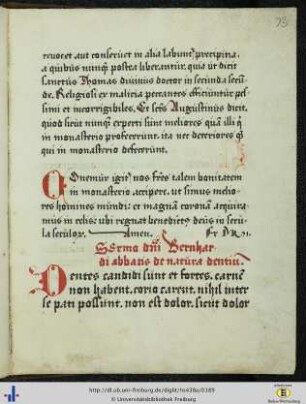 73
reuocet aut conseruet in alia labunt precipitia
a quibus nunq̄ postea liberantur. quia ut dicit
sanctus Thomas diuinus doctor in secunda secū
de. Religiosi ex malicia peccantes efficiuntur pes
simi et incorrigibiles. Et sctūs Augustinus dicit.
quod sicut nunq̄ experti sunt meliores quā illi q̄
in monasterio profecerunt. ita nec deteriores q̄
qui in monasterio defecerunt.
Conemur igit nos frēs talem bonitatem
in monasterio accipere. ut simus melio
res homines mundi: et magnā coronam acquira
mus in celis: ubi regnat benedictus deus in secu
la seculorum. Amen.
Sermo dñi Bernhar
di abbatis de natura dentium.
Dentes candidi sunt et fortes. carnē
non habent. corio carent. nihil inter
se pati possunt. non est dolor. sicut dolor
http://dl.ub.uni-freiburg.de/diglit/hs439bc/0169
© Universitätsbibliothek Freiburg